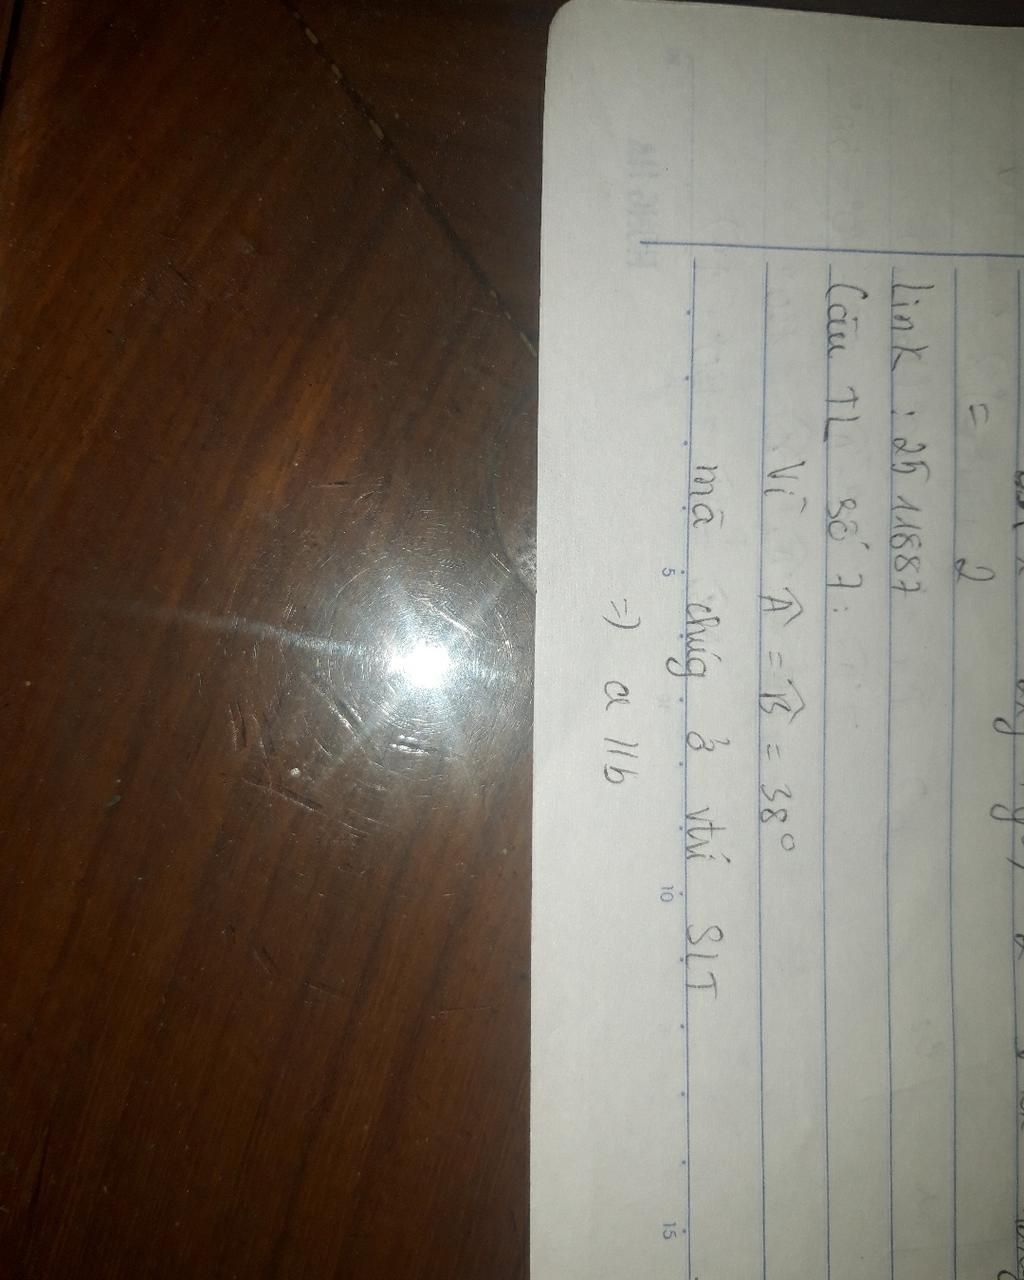 =
2
Link : 2511887
Câu TL số 7:
Vì Â = B̂ = 38°
mà chúg ở vtrí SLT
5 10 15
=) a // b